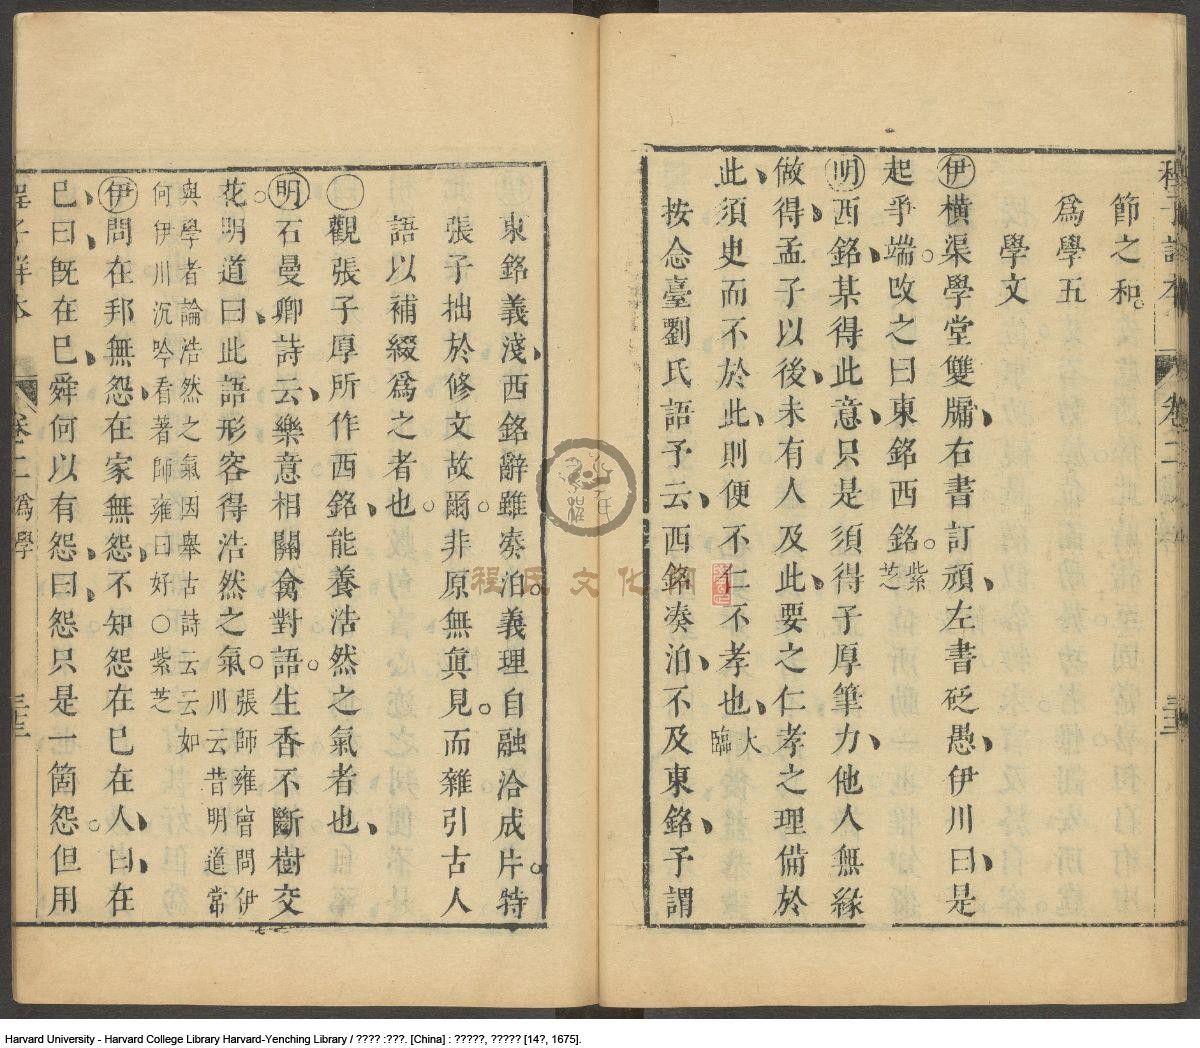 節之和
爲學五
學文
伊橫渠學堂雙牖右書訂頑左書砭愚伊川曰是
起爭端攺之曰東銘西銘紫芝
明西銘某得此意只是須得子厚筆力他人無緣
做得孟子以後未有人及此要之仁孝之理備於
此須臾而不於此則便不仁不孝也大臨
按念臺劉氏語予云西銘凑泊不及東銘予謂
東銘義淺西銘辭雖凑泊義理自融洽成片特
張子拙於修文故爾非原無眞見而雜引古人
語以補綴爲之者也
觀張子厚所作西銘能養浩然之氣者也
明石曼卿詩云樂意相關禽對語生香不斷樹交
花明道曰此語形容得浩然之氣張師雍曾問伊川云昔明道常
與學者論浩然之氣因舉古詩云云如何伊川沉吟看著師雍曰好○紫芝
伊問在邦無怨在家無怨不知怨在巳在人曰在
巳曰旣在巳舜何以有怨曰怨只是一箇怨但用
程子詳本
卷二
爲學
三十三
程氏文化網
Harvard University - Harvard College Library Harvard-Yenching Library / ???? :???. [China] : ?????, ????? [14?, 1675].